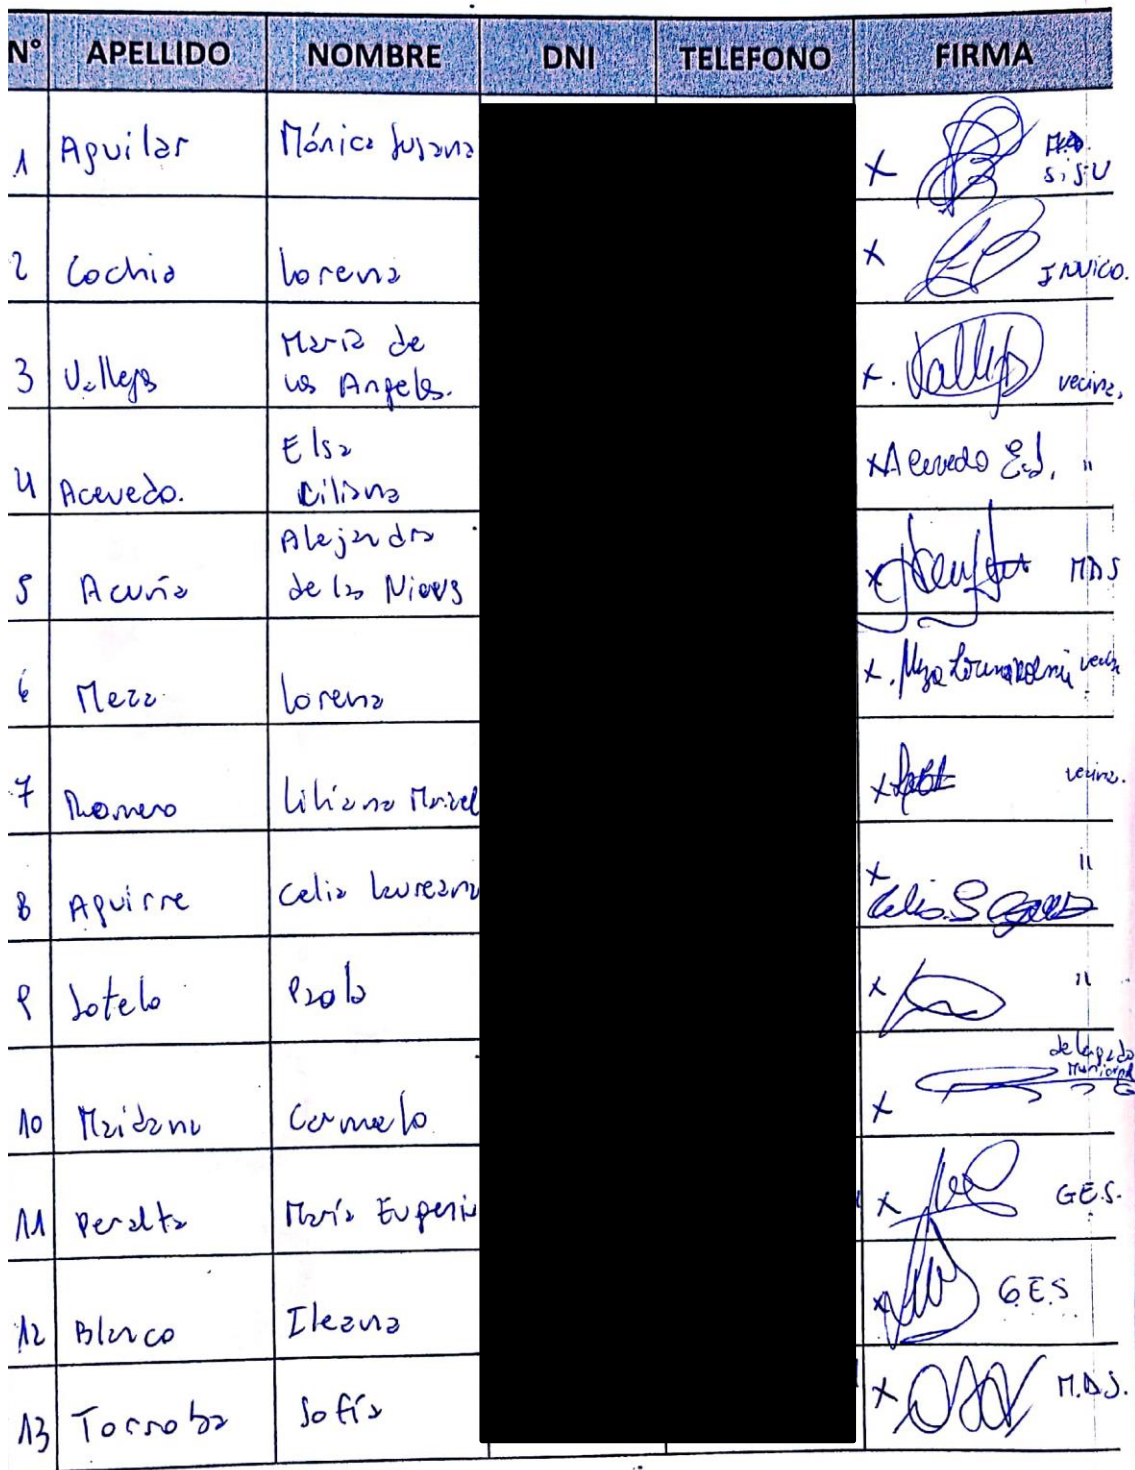 N° APELLIDO NOMBRE DNI TELEFONO FIRMA
1 Aguilar Mónica Susana X SISU
2 Cochia Lorena X INVICO.
3 Vallejos María de los Angeles. X. Vallejos vecina,
4 Acevedo. Elsa Liliana X Acevedo E.L. "
5 Acuña Alejandra de las Nieves X MDS
6 Meza Lorena X. Meza Lorena vecina
7 Romero Liliana Marisel X vecina.
8 Aguirre Celia Laureana X Celia "
9 Sotelo Paola X "
10 Maidana Carmelo X delegado Municipal
11 Peralta María Eugenia X G.E.S.
12 Blanco Ileana X G.E.S
13 Torroba Sofía X M.D.S.